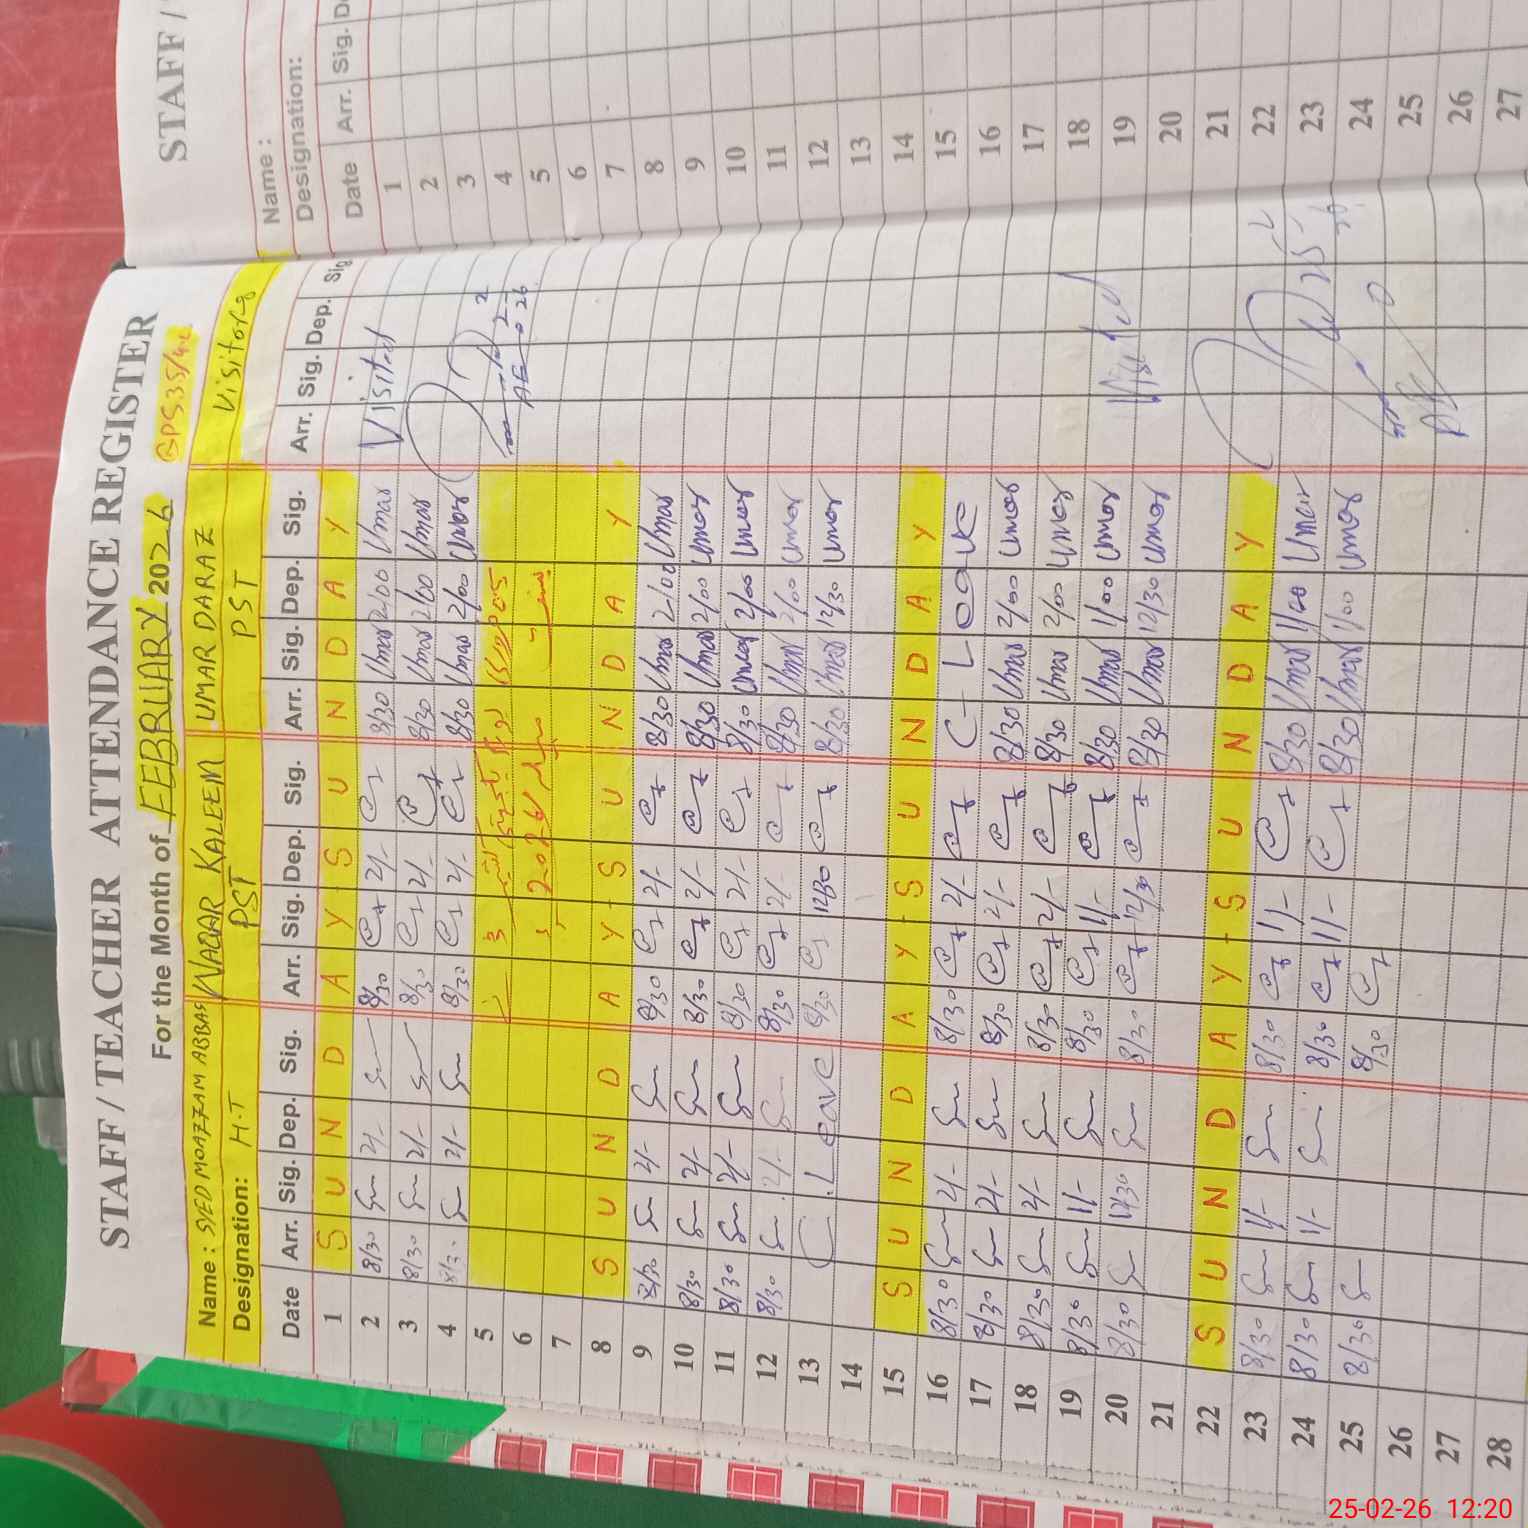 STAFF / TEACHER ATTENDANCE REGISTER
For the Month of FEBRUARY 2026 GPS 35/4.L
Name : SYED MOAZZAM ABBAS WAQAR KALEEM UMAR DARAZ Visitors
Designation: H.T PST PST
Date Arr. Sig. Dep. Sig. Arr. Sig. Dep. Sig. Arr. Sig. Dep. Sig. Arr. Sig. Dep. Sig
1 S U N D A Y - S U N D A Y
2 8/30 2/- 8/30 2/- 8/30 Umar 2/00 Umar Visited
3 8/30 2/- 8/30 2/- 8/30 Umar 2/00 Umar
4 8/30 2/- 8/30 2/- 8/30 Umar 2/00 Umar
5
6
7
8 S U N D A Y - S U N D A Y
9 8/30 2/- 8/30 2/- 8/30 Umar 2/00 Umar
10 8/30 2/- 8/30 2/- 8/30 Umar 2/00 Umar
11 8/30 2/- 8/30 2/- 8/30 Umar 2/00 Umar
12 8/30 2/- 8/30 2/- 8/30 Umar 2/00 Umar
13 C. Leave 8/30 1230 8/30 Umar 12/30 Umar
14
15 S U N D A Y - S U N D A Y
16 8/30 2/- 8/30 2/- C - Leave
17 8/30 2/- 8/30 2/- 8/30 Umar 2/00 Umar
18 8/30 2/- 8/30 2/- 8/30 Umar 2/00 Umar
19 8/30 1/- 8/30 1/- 8/30 Umar 1/00 Umar
20 8/30 12/30 8/30 12/30 8/30 Umar 12/30 Umar Visited
21
22 S U N D A Y - S U N D A Y
23 8/30 1/- 8/30 1/- 8/30 Umar 1/00 Umar
24 8/30 1/- 8/30 1/- 8/30 Umar 1/00 Umar
25 8/30 8/30
26
27
28
STAFF /
Name :
Designation:
Date Arr. Sig.
1
2
3
4
5
6
7
8
9
10
11
12
13
14
15
16
17
18
19
20
21
22
23
24
25
26
27
25-02-26 12:20